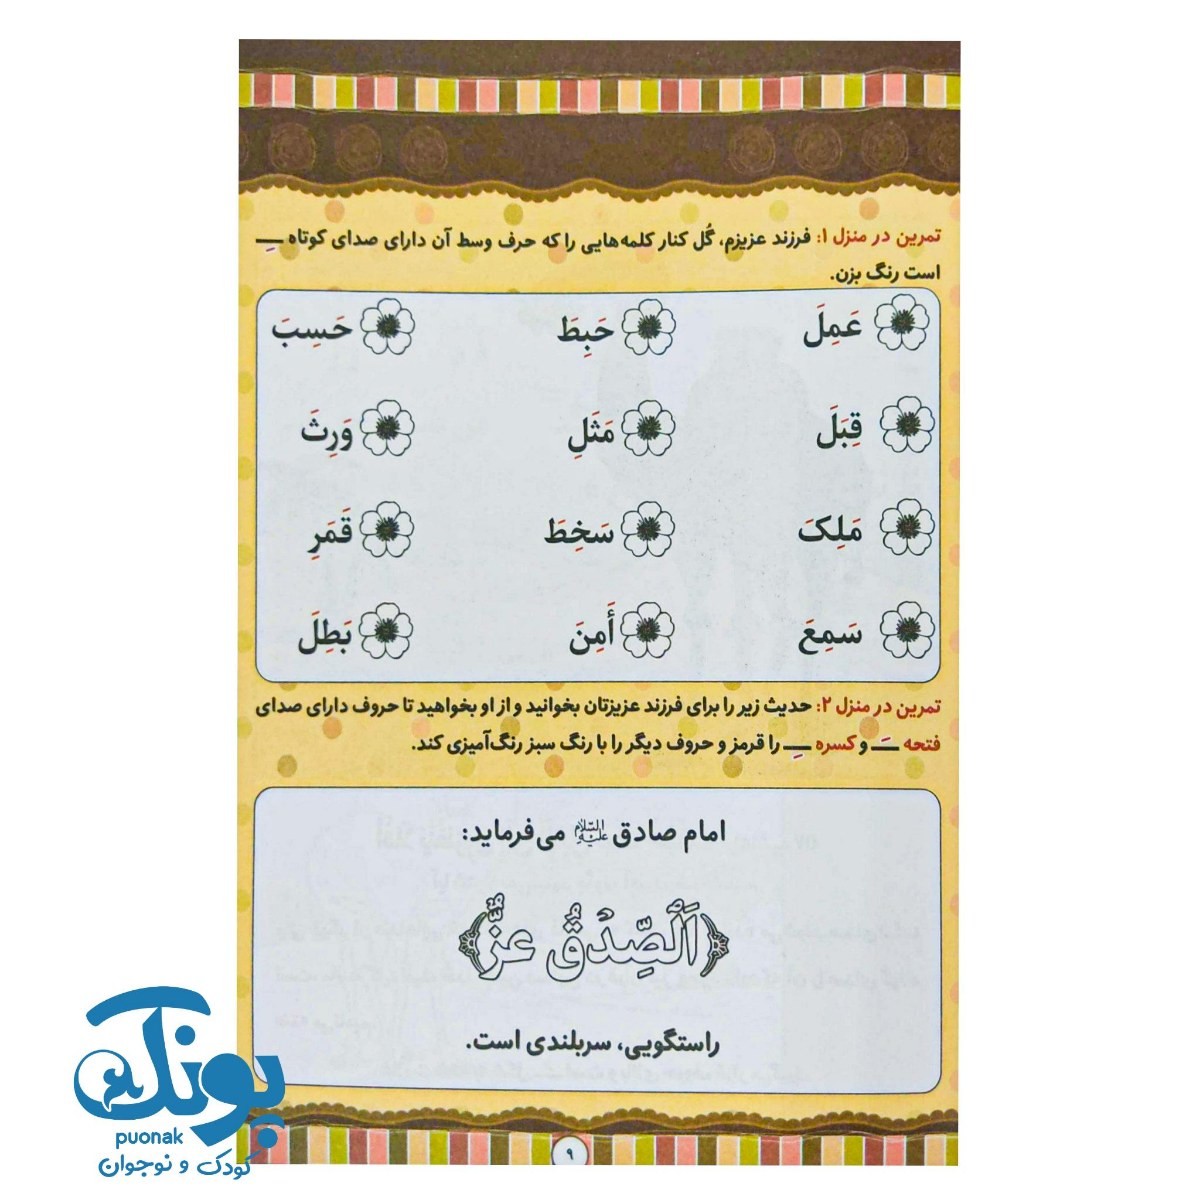 تمرین در منزل ۱: فرزند عزیزم، گُل کنار کلمه‌هایی را که حرف وسط آن دارای صدای کوتاه ـِـ
است رنگ بزن.
عَمِلَ حَبِطَ حَسِبَ
قِبَلَ مَثَلِ وَرِثَ
مَلِکَ سَخِطَ قَمَرِ
سَمِعَ أَمِنَ بَطِلَ
تمرین در منزل ۲: حدیث زیر را برای فرزند عزیزتان بخوانید و از او بخواهید تا حروف دارای صدای
فتحه ـَـ و کسره ـِـ را قرمز و حروف دیگر را با رنگ سبز رنگ‌آمیزی کند.
امام صادق علیه السلام می‌فرماید:
﴿اَلصِّدْقُ عِزٌّ﴾
راستگویی، سربلندی است.
۹
پونک
puonak
کودک و نوجوان